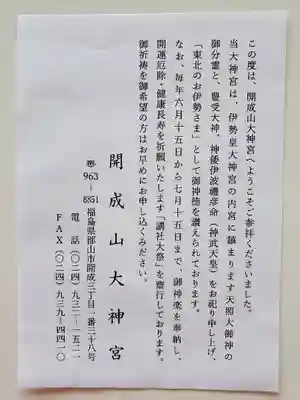 この度は、開成山大神宮へようこそご参拝くださいました。
当大神宮は、伊勢皇大神宮の内宮に鎮まります天照大御神の
御分霊と、豊受大神、神倭伊波禮彦命（神武天皇）をお祀り申し上げ、
「東北のお伊勢さま」として御神徳を讃えられております。
なお、毎年六月十五日から七月十五日まで、御神楽を奉納し、
開運厄除・健康長寿を祈願いたします「講社大祭」を齋行しております。
御祈祷を御希望の方はお早めにお申し込みください。
開成山大神宮
〠963－8851 福島県郡山市開成三丁目一番三十八号
電話（〇二四）九三二－一五二一
ＦＡＸ（〇二四）九三九－四四一〇